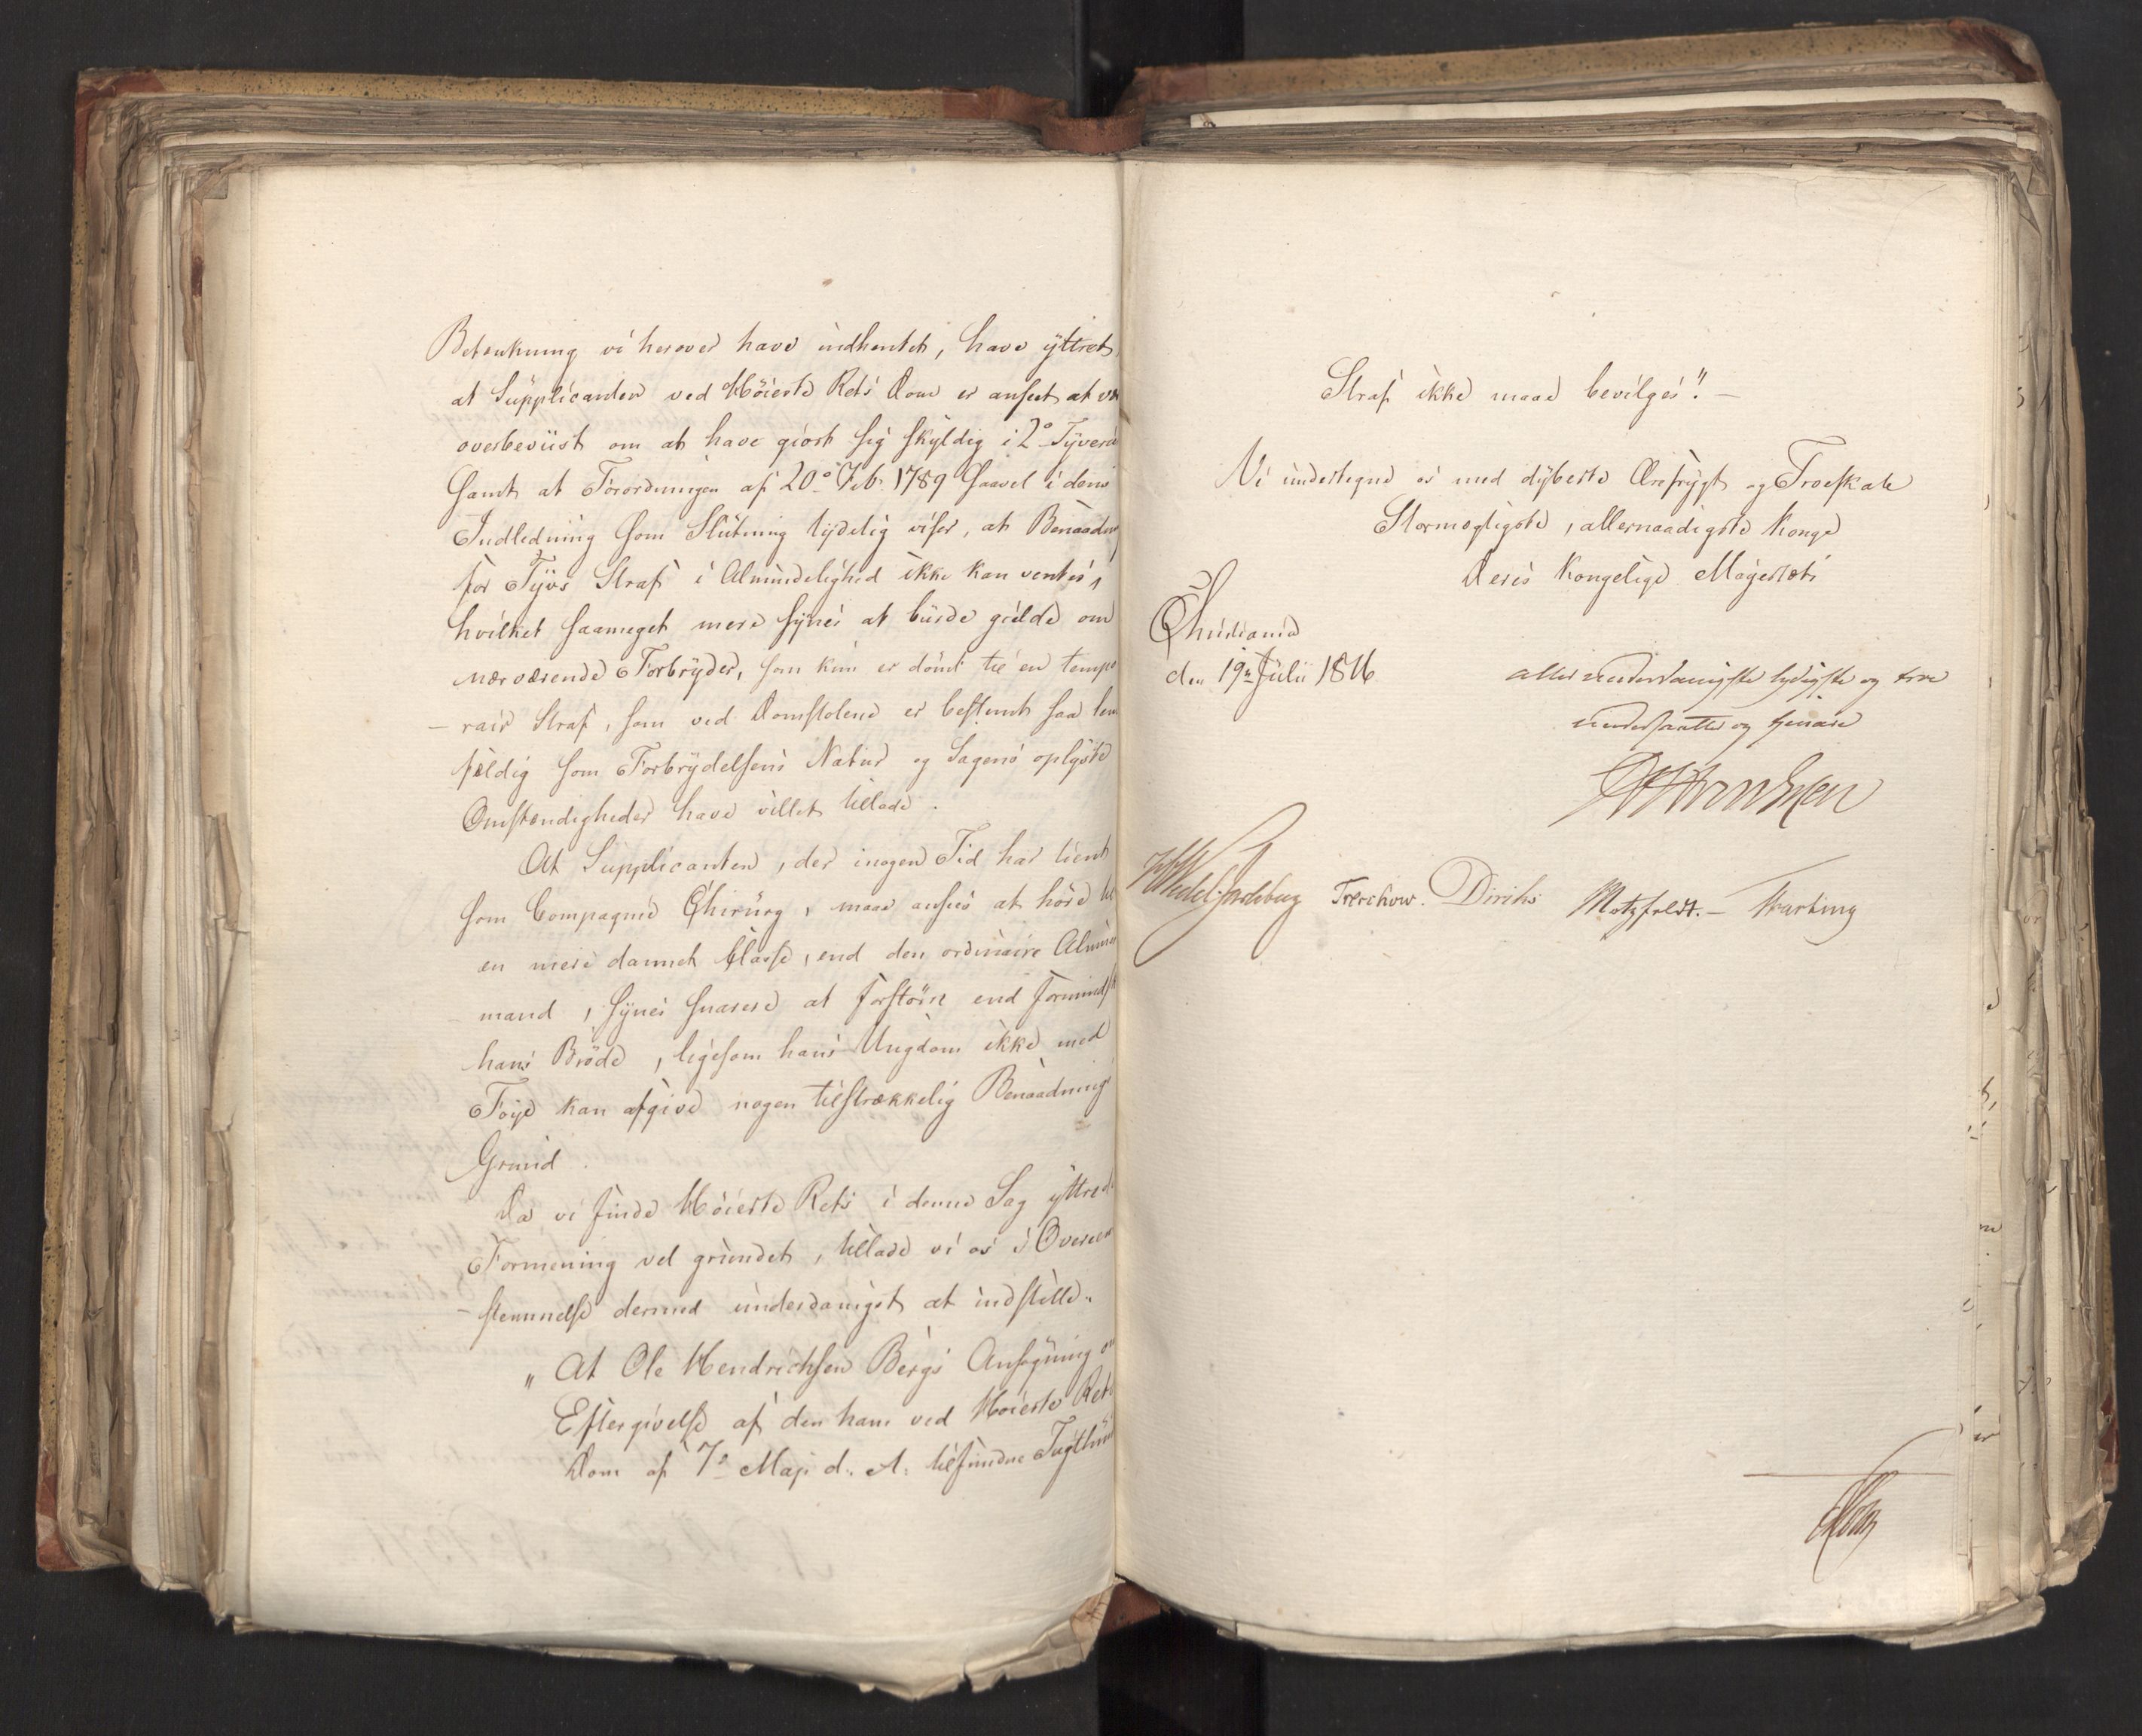 Betænkning vi herover have indhentet, have yttret
at Supplicanten ved Høieste Rets Dom er anseet at væ
overbeviist om at have giort sig skyldig i 2º Tyverie
samt at Forordningen af 20º Feb. 1789 saavel i dens
Indledning som Slutning tydelig viser, at Benaadn
for Tyvs Straf i Almindelighed ikke kan ventes,
hvilket saameget mere synes at burde gielde om
nærværende Forbryder, som kun er dömt til en tempo
- rair Straf, som ved Domstolene er bestemt saa lem
fældig som Forbrydelsens Natur og Sagens oplyste
Omstændigheder have villet tillade.
At Supplicanten, der i nogen Tid har tient
som Compagnie Chirurg, maae ansees at höre til
en mere dannet Classe, end den ordinaire Almue
mand, synes snarere at forstörre end formindsk
hans Bröde, ligesom hans Ungdom ikke med
Föye kan afgive nogen tilstrækkelig Benaadnings
Grund.
Da vi finde Höieste Rets i denne Sag yttrede
Formening vel grundet, tillade vi os i Overeen
- stemmelse dermed underdanigst at indstille.
„ At Ole Hendrichsen Bergs Ansøgning om
Eftergivelse af den ham ved Höieste Rets
Dom af 7º Maji d. A. tilfundne Tugthuus
Straf ikke maae bevilges". -
Vi undertegne os med dybeste Ærefrygt og Troeskab
Stormægtigste, allernaadigste Konge
Deres Kongelige Majestæts
Christiania
den 19n Julii 1816
allerunderdanigste lydigste og troe
undersaatter og tjenere
Wedel Jarlsberg Treschow. Diriks Motzfeldt. - Krarting